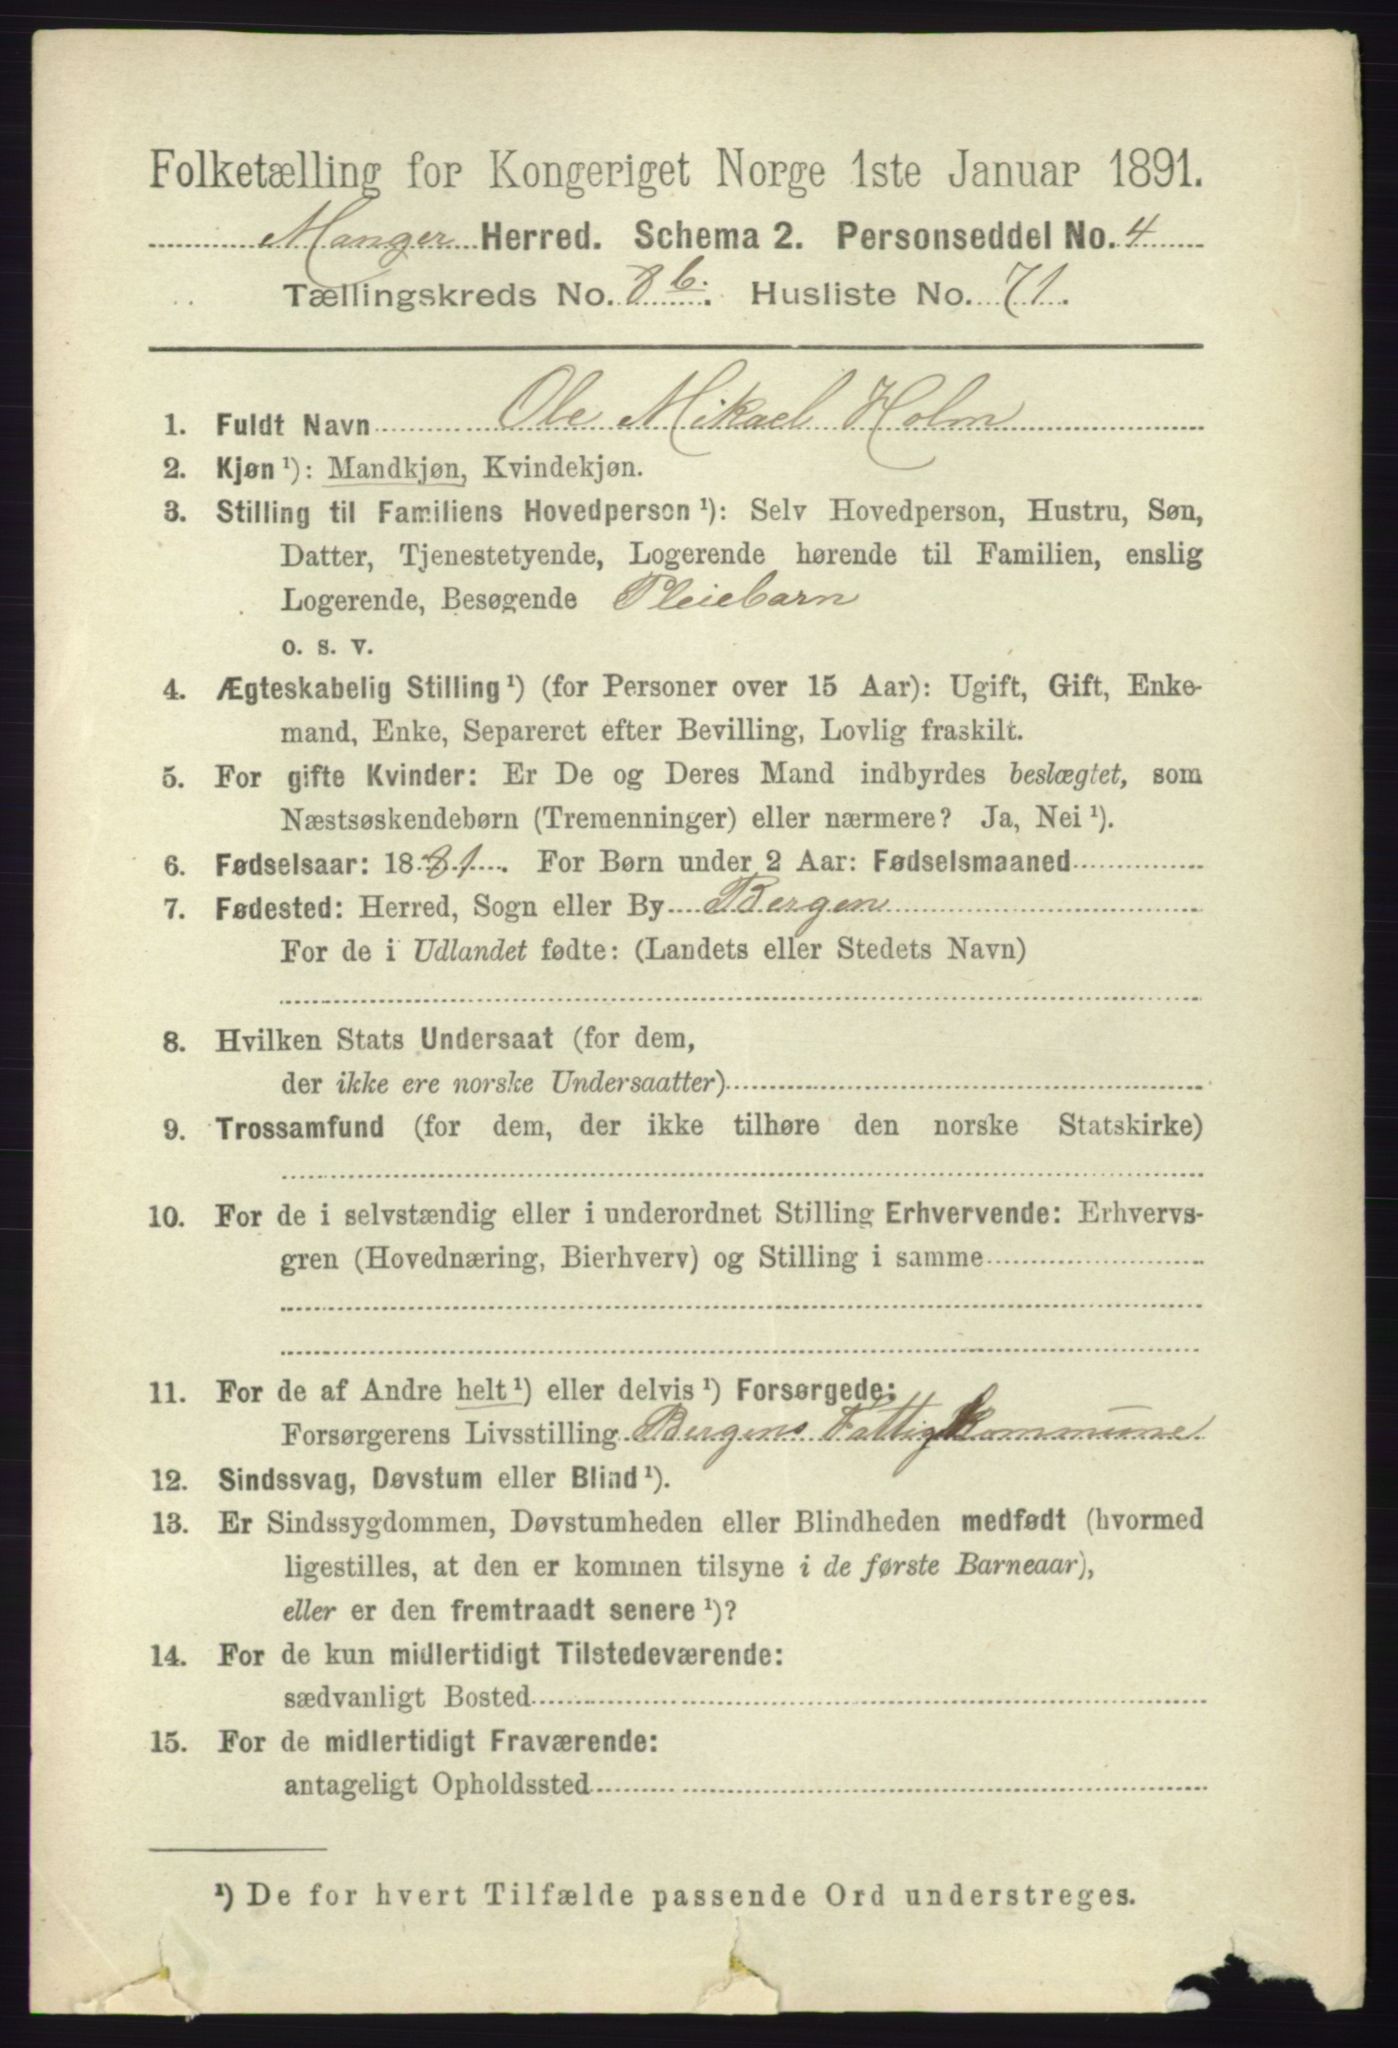 Folketælling for Kongeriget Norge 1ste Januar 1891.
Manger Herred. Schema 2. Personseddel No. 4
Tællingskreds No. 8 b. Husliste No. 71.
1. Fuldt Navn Ole Mikael Holm
2. Kjøn ¹): Mandkjøn, Kvindekjøn.
3. Stilling til Familiens Hovedperson ¹): Selv Hovedperson, Hustru, Søn,
Datter, Tjenestetyende, Logerende hørende til Familien, enslig
Logerende, Besøgende Pleiebarn
o. s. v.
4. Ægteskabelig Stilling ¹) (for Personer over 15 Aar): Ugift, Gift, Enke-
mand, Enke, Separeret efter Bevilling, Lovlig fraskilt.
5. For gifte Kvinder: Er De og Deres Mand indbyrdes beslægtet, som
Næstsøskendebørn (Tremenninger) eller nærmere? Ja, Nei ¹).
6. Fødselsaar: 1881. For Børn under 2 Aar: Fødselsmaaned
7. Fødested: Herred, Sogn eller By Bergen
For de i Udlandet fødte: (Landets eller Stedets Navn)
8. Hvilken Stats Undersaat (for dem,
der ikke ere norske Undersaatter)
9. Trossamfund (for dem, der ikke tilhøre den norske Statskirke)
10. For de i selvstændig eller i underordnet Stilling Erhvervende: Erhvervs-
gren (Hovednæring, Bierhverv) og Stilling i samme
11. For de af Andre helt ¹) eller delvis ¹) Forsørgede:
Forsørgerens Livsstilling Bergens Fattigkommune
12. Sindssvag, Døvstum eller Blind ¹).
13. Er Sindssygdommen, Døvstumheden eller Blindheden medfødt (hvormed
ligestilles, at den er kommen tilsyne i de første Barneaar),
eller er den fremtraadt senere ¹)?
14. For de kun midlertidigt Tilstedeværende:
sædvanligt Bosted
15. For de midlertidigt Fraværende:
antageligt Opholdssted
¹) De for hvert Tilfælde passende Ord understreges.